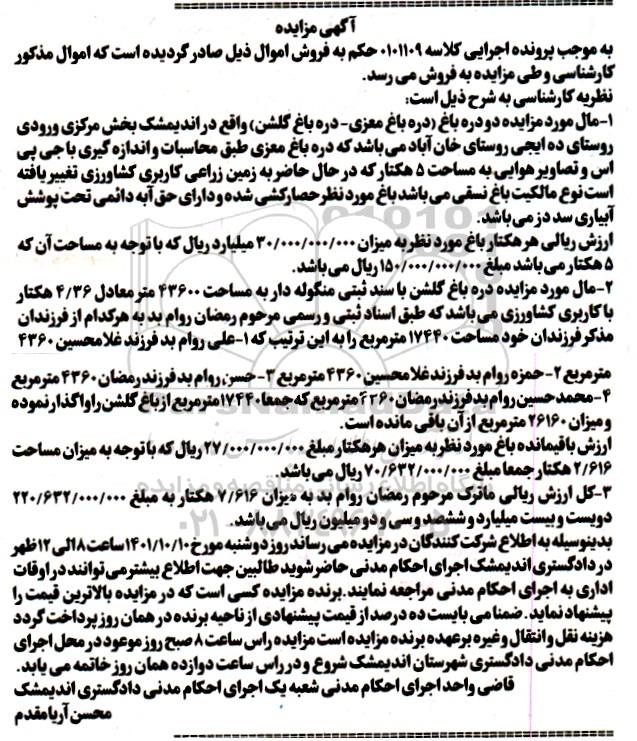 آگهی مزایده
به موجب پرونده اجرایی کلاسه ۰۱۰۱۱۰۹ حکم به فروش اموال ذیل صادر گردیده است که اموال مذکور
کارشناسی و طی مزایده به فروش می رسد.
نظریه کارشناسی به شرح ذیل است:
۱-مال مورد مزایده دو دره باغ (دره باغ معزی- دره باغ گلشن) واقع در اندیمشک بخش مرکزی ورودی
روستای ده ایجی روستای خان آباد می باشد که دره باغ معزی طبق محاسبات و اندازه گیری با جی پی
اس و تصاویر هوایی به مساحت ۵ هکتار که در حال حاضر به زمین زراعی کاربری کشاورزی تغییر یافته
است نوع مالکیت باغ نسقی می باشد باغ مورد نظر حصار کشی شده و دارای حق آبه دائمی تحت پوشش
آبیاری سد دز می باشد.
ارزش ریالی هر هکتار باغ مورد نظر به میزان ۳۰/۰۰۰/۰۰۰/۰۰۰ میلیارد ریال که با توجه به مساحت آن که
۵ هکتار می باشد مبلغ ۱۵۰/۰۰۰/۰۰۰/۰۰۰ ریال می باشد.
۲-مال مورد مزایده دره باغ گلشن با سند ثبتی منگوله دار به مساحت ۴۳۶۰۰ متر معادل ۴/۳۶ هکتار
با کاربری کشاورزی می باشد که طبق اسناد ثبتی و رسمی مرحوم رمضان روام بد به هرکدام از فرزندان
مذکر فرزندان خود مساحت ۱۷۴۴۰ مترمربع را به این ترتیب که ۱-علی روام بد فرزند غلامحسین ۴۳۶۰
مترمربع ۲-حمزه روام بد فرزند غلامحسین ۴۳۶۰ مترمربع ۳-حسن روام بد فرزند رمضان ۴۳۶۰ مترمربع
۴-محمدحسین روام بد فرزند رمضان ۴۳۶۰ مترمربع که جمعا ۱۷۴۴۰ مترمربع از باغ گلشن را واگذار نموده
و میزان ۲۶۱۶۰ مترمربع از آن باقی مانده است.
ارزش باقیمانده باغ مورد نظر به میزان هر هکتار مبلغ ۲۷/۰۰۰/۰۰۰/۰۰۰ ریال که با توجه به میزان مساحت
۲/۶۱۶ هکتار جمعا مبلغ ۷۰/۶۳۲/۰۰۰/۰۰۰ ریال می باشد.
۳-کل ارزش ریالی ماترک مرحوم رمضان روام بد به میزان ۷/۶۱۶ هکتار به مبلغ ۲۲۰/۶۳۲/۰۰۰/۰۰۰
دویست و بیست میلیارد و ششصد و سی و دو میلیون ریال می باشد.
بدینوسیله به اطلاع شرکت کنندگان در مزایده می رساند روز دوشنبه مورخ ۱۴۰۱/۱۰/۱۰ ساعت ۸ الی ۱۲ ظهر
در دادگستری اندیمشک اجرای احکام مدنی حاضر شوید طالبین جهت اطلاع بیشتر می توانند در اوقات
اداری به اجرای احکام مدنی مراجعه نمایند. برنده مزایده کسی است که در مزایده بالاترین قیمت را
پیشنهاد نماید. ضمنا می بایست ده درصد از قیمت پیشنهادی از ناحیه برنده در همان روز پرداخت گردد
هزینه نقل و انتقال و غیره بر عهده برنده مزایده است مزایده راس ساعت ۸ صبح روز موعود در محل اجرای
احکام مدنی دادگستری شهرستان اندیمشک شروع و در راس ساعت دوازده همان روز خاتمه می یابد.
قاضی واحد اجرای احکام مدنی شعبه یک اجرای احکام مدنی دادگستری اندیمشک
محسن آریامقدم